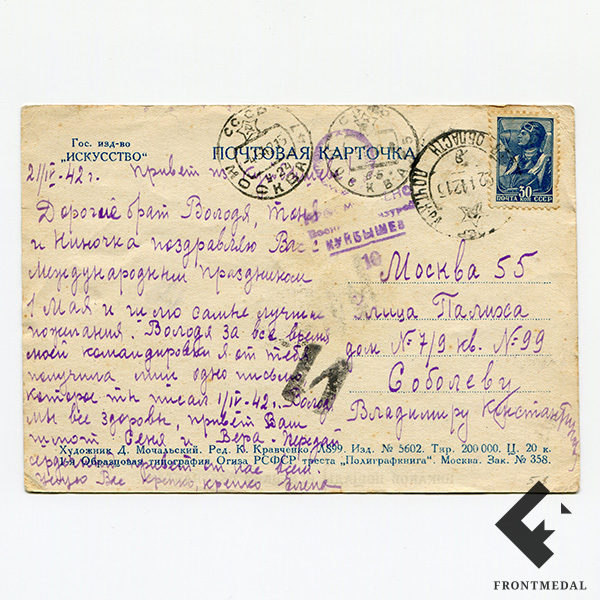 Гос. изд-во
„ИСКУССТВО"
ПОЧТОВАЯ КАРТОЧКА
21/IV-42 г. Привет
Дорогие брат Володя, Тоня
и Ниночка поздравляю Вас с
международным праздником
1 Мая и шлю самые лучшие
пожелания. Володя за все время
моей командировки я от тебя
получила лишь одно письмо
которое ты писал 1/IV-42 г.
мы все здоровы, привет Вам
шлют Сеня и Вера. Передай
сердечный привет от нас всем.
Целую Вас крепко, крепко Елена
Москва 55
улица Палиха
дом № 7/9 кв. № 99
Соболеву
Владимиру Константиновичу
Художник Д. Мочальский. Ред. К. Кравченко. Л899. Изд. № 5602. Тир. 200 000. Ц. 20 к.
1-я Образцовая типография Огиза РСФСР треста „Полиграфкнига". Москва. Зак. № 358.
30
ПОЧТА СССР
МОСКВА
МОСКВА
КУЙБЫШЕВ
10
И
FRONTMEDAL